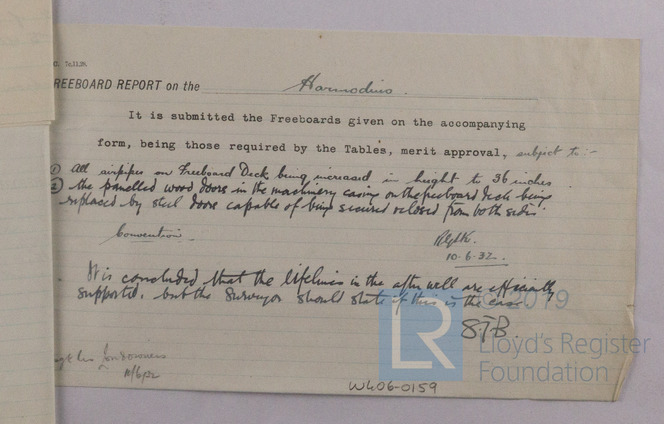 REEBOARD REPORT on the Harmodius.
It is submitted the Freeboards given on the accompanying
form, being those required by the Tables, merit approval, subject to:-
① All airpipes on Freeboard Deck being increased in height to 36 inches.
② the panelled wood doors in the machinery casing on the freeboard deck being
replaced by steel doors capable of being secured & closed from both sides.
Convention.
10.6.32.
It is concluded that the lifelines in the after well are efficiently
supported, but the Surveyor should state if this is the case.
STB.
© 2019
Lloyd's Register
Foundation
LR
10/6/32
W606-0159